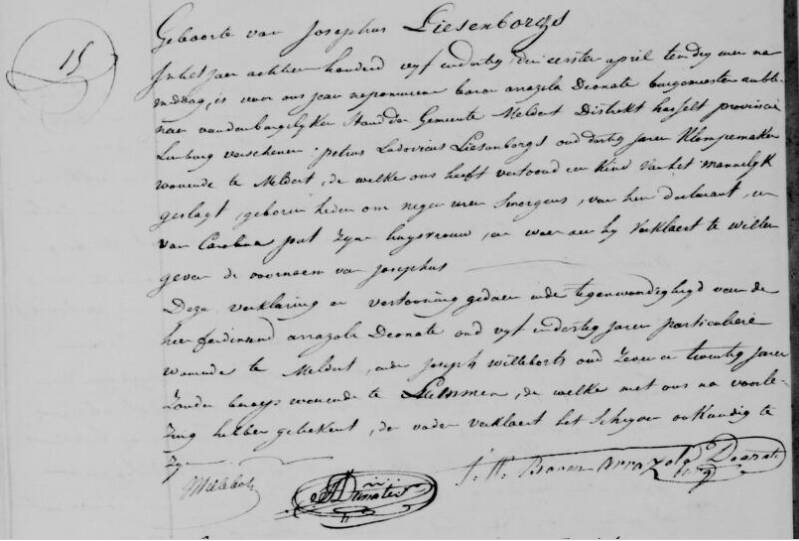 15
Geboorte van Josephus Liesenborgs
In het jaer achtien honderd vyf en dertig, den eersten april ten dry uren na
middag, is voor ons jean nepomucen baron arrazola Deonate burgemeester ambte-
naer van den burgelyken Stand der Gemeente Meldert Distrikt hasselt provincie
Limburg verschenen petrus Ludovicus Liesenborgs oud dertig jaren Klompemaker
wonende te Meldert, de welke ons heeft vertoond een Kind van het mannelyk
geslagt, geboren heden om negen uren smorgens, van hem declarant, en
van Carolina put Zyne huysvrouw, en waer aen hy Verklaert te willen
geven de voornaem van Josephus
Deze verklaring en vertooning gedaen in de tegenwoordigheyd van de
heer ferdinand arrazola Deonate oud vyf en dertig jaren particuliere
wonende te Meldert, en de Joseph Willeborts oud Zeven en twentig jaren
Zonder beroep wonende te Lummen, de welke met ons na voorle-
Zing hebben geteekent, de vader verklaert het Schryven onkundig te
Zyn
J. N. Baron Arrazola Deonate